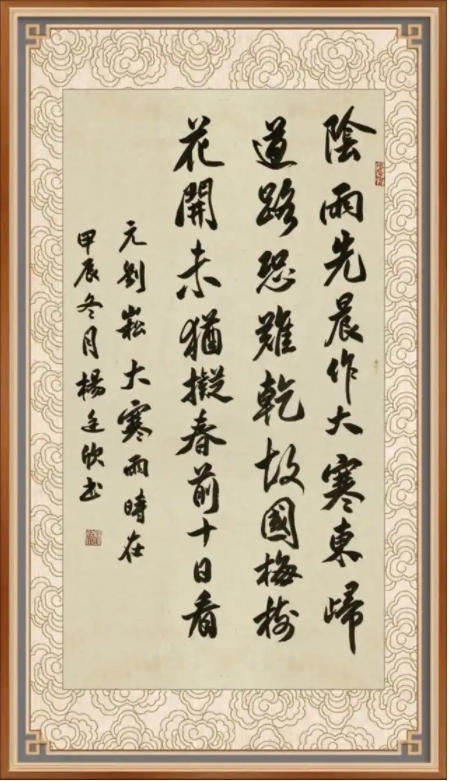 陰雨先晨作大寒東歸
道路恐難乾故國梅樹
花開未猶擬春前十日看
元劉崧大寒雨時在
甲辰冬月楊廷欣書